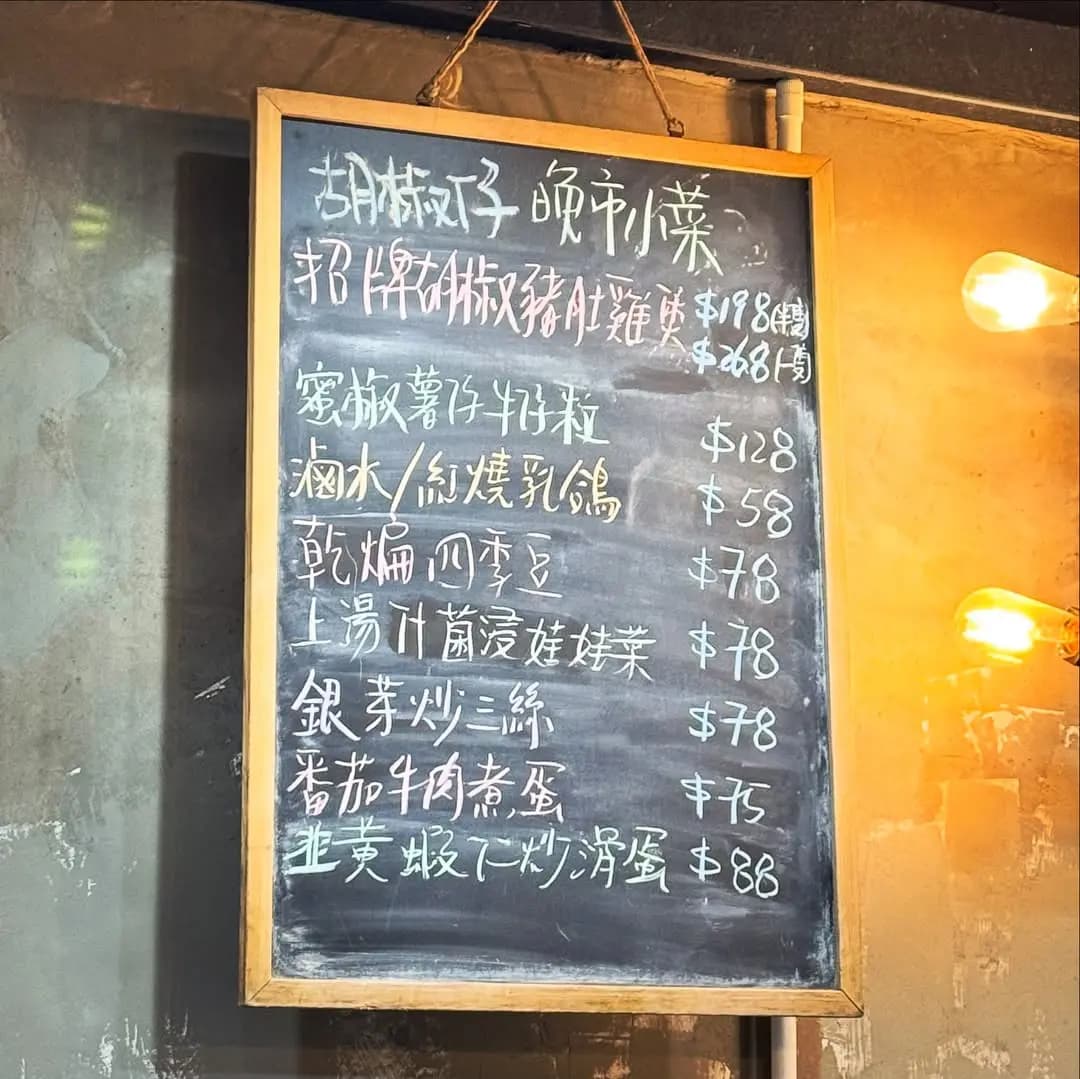 胡椒仔 晚市小菜
招牌胡椒豬肚雞煲 $198(半隻)
$268(一隻)
蜜椒薯仔牛仔粒 $128
滷水/紅燒乳鴿 $58
乾煸四季豆 $78
上湯什菌浸娃娃菜 $78
銀芽炒三絲 $78
番茄牛肉煮蛋 $75
韮黄蝦仁炒滑蛋 $88